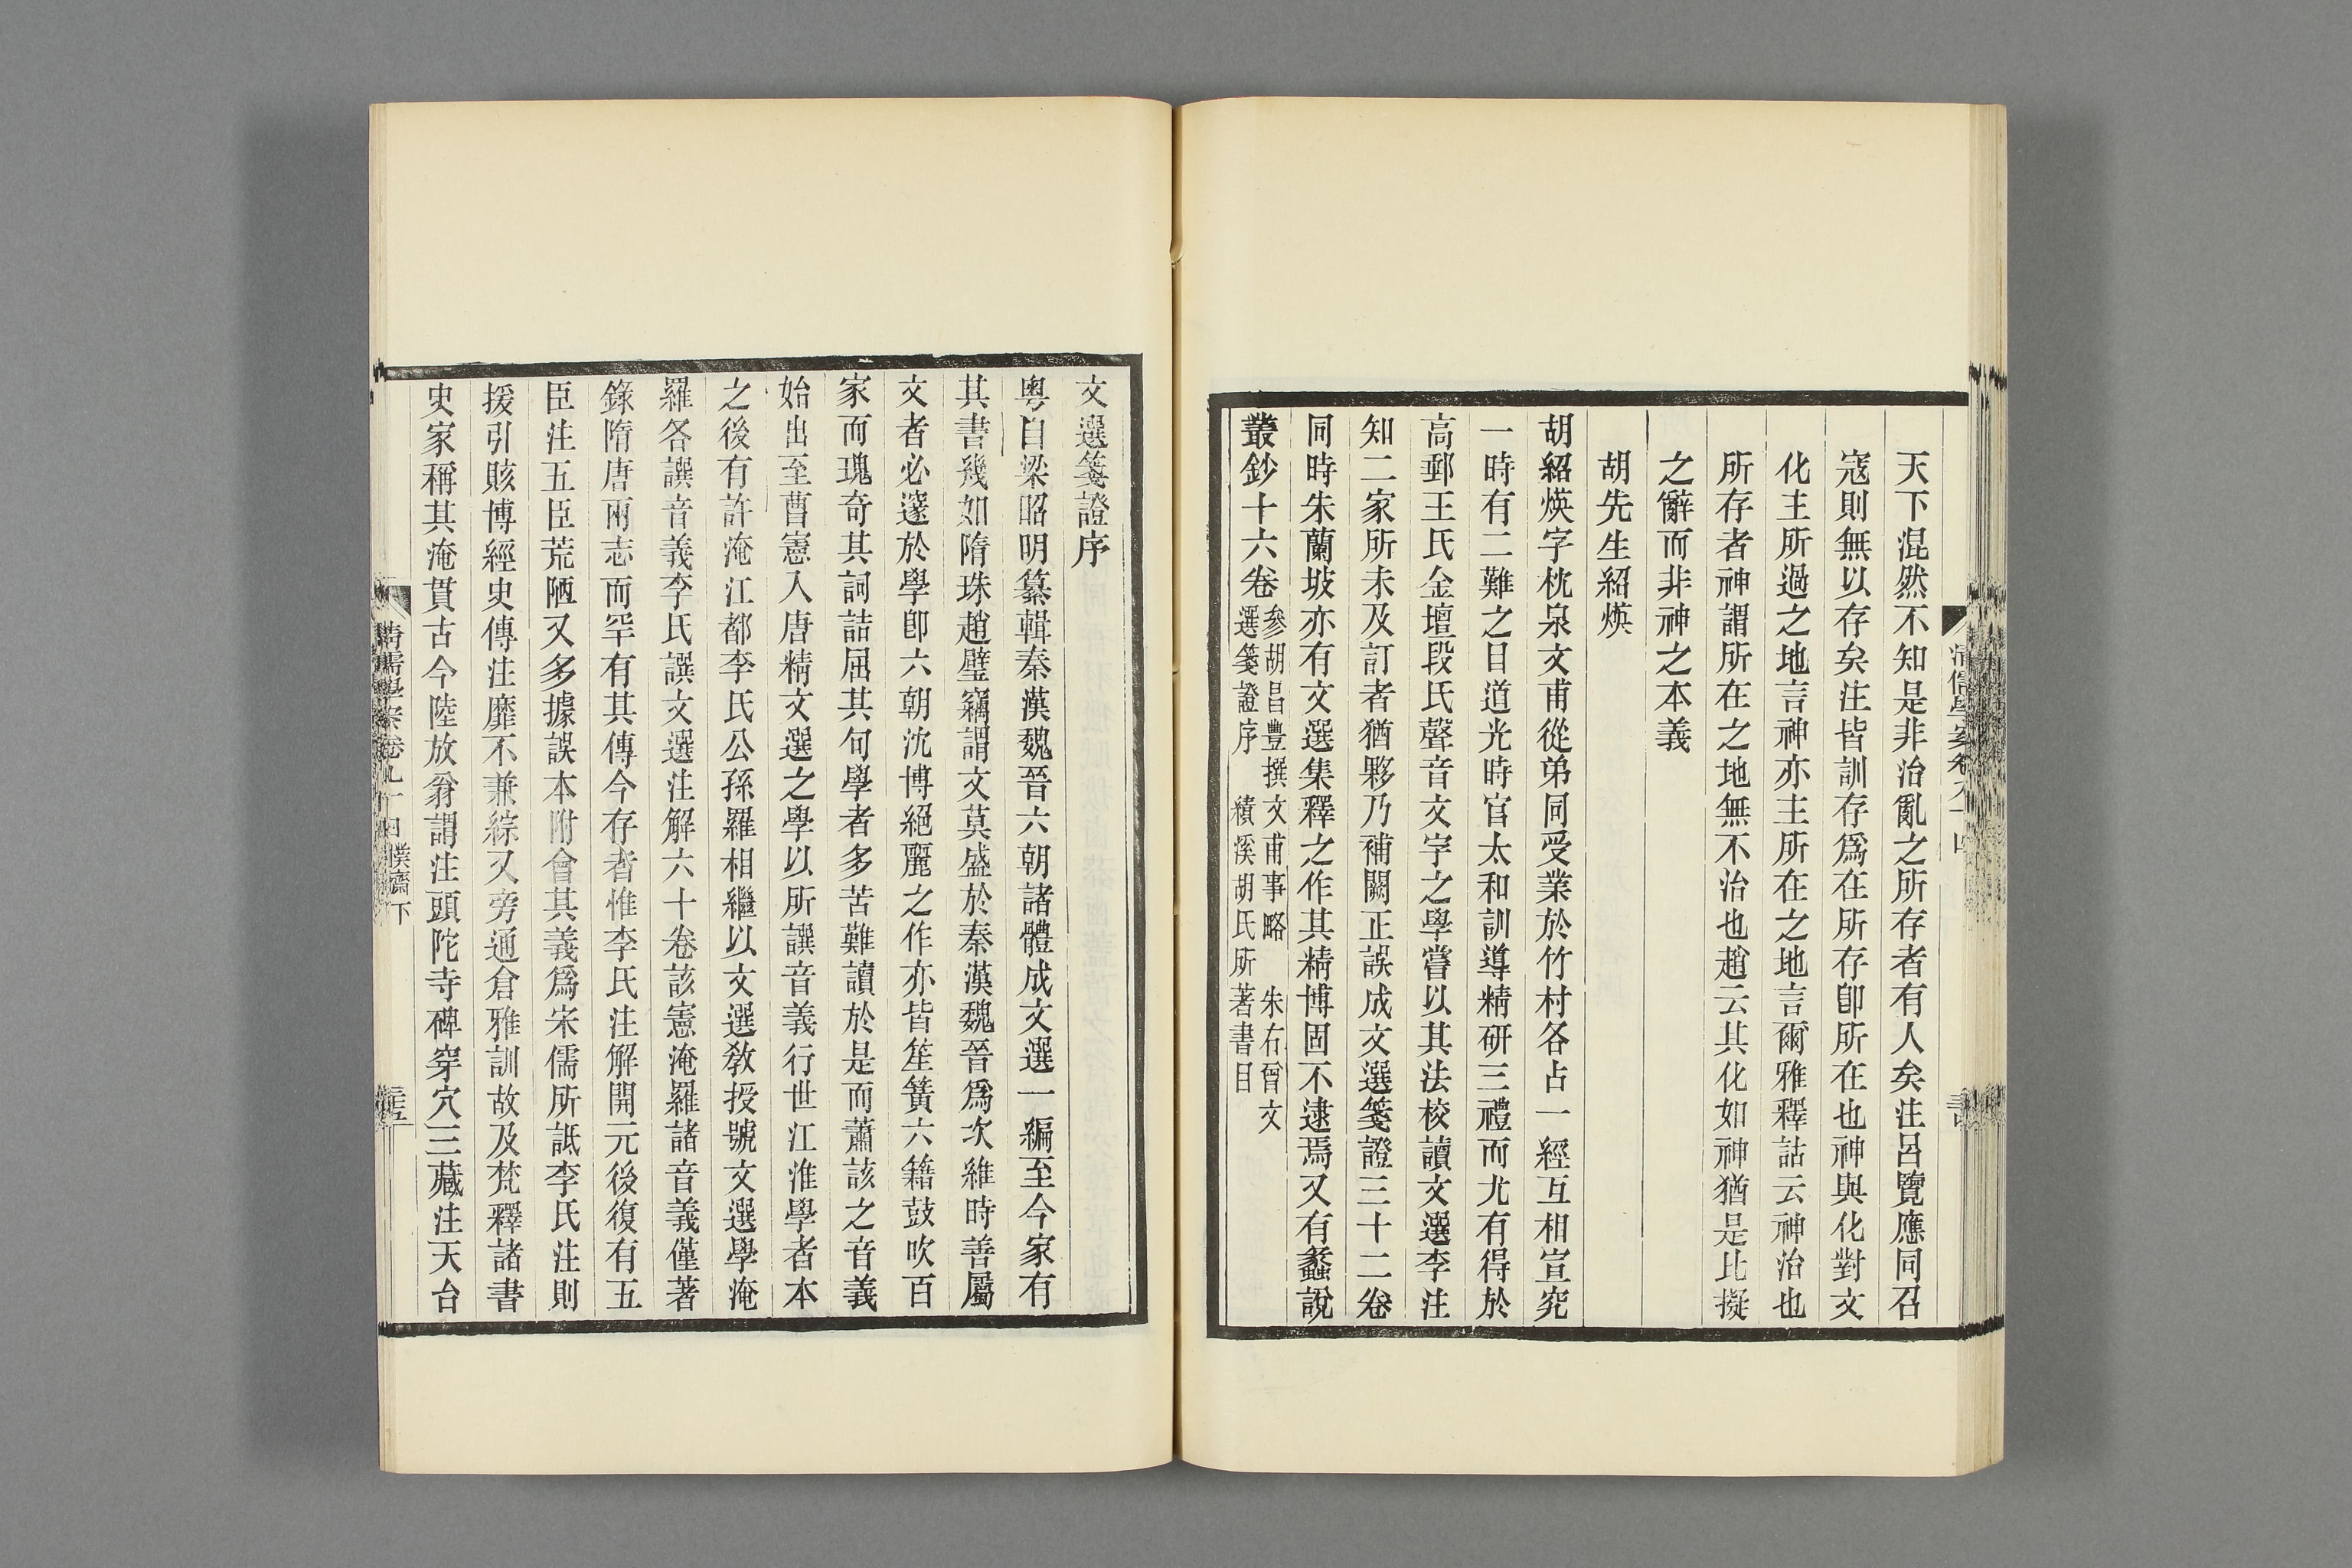 天下混然不知是非治亂之所存者有人矣注呂覽應同召
寇則無以存矣注皆訓存爲在所存卽所在也神與化對文
化主所過之地言神亦主所在之地言爾雅釋詁云神治也
所存者神謂所在之地無不治也趙云其化如神猶是比擬
之辭而非神之本義
胡先生紹煐
胡紹煐字枕泉文甫從弟同受業於竹村各占一經互相宣究
一時有二難之目道光時官太和訓導精研三禮而尤有得於
高郵王氏金壇段氏聲音文字之學嘗以其法校讀文選李注
知二家所未及訂者猶夥乃補闕正誤成文選箋證三十二卷
同時朱蘭坡亦有文選集釋之作其精博固不逮焉又有蠡說
叢鈔十六卷
參胡昌豐撰文甫事略 朱右曾文
選箋證序 績溪胡氏所著書目
文選箋證序
粵自梁昭明纂輯秦漢魏晉六朝諸體成文選一編至今家有
其書幾如隋珠趙璧竊謂文莫盛於秦漢魏晉爲次維時善屬
文者必邃於學卽六朝沈博絕麗之作亦皆笙簧六籍鼓吹百
家而瑰奇其詞詰屈其句學者多苦難讀於是而蕭該之音義
始出至曹憲入唐精文選之學以所譔音義行世江淮學者本
之後有許淹江都李氏公孫羅相繼以文選教授號文選學淹
羅各譔音義李氏譔文選注解六十卷該憲淹羅諸音義僅著
錄隋唐兩志而罕有其傳今存者惟李氏注解開元後復有五
臣注五臣荒陋又多據誤本附會其義爲宋儒所詆李氏注則
援引賅博經史傳注靡不兼綜又旁通倉雅訓故及梵釋諸書
史家稱其淹貫古今陸放翁謂注頭陀寺碑穿穴三藏注天台
清儒學案卷九十四 樸齋下